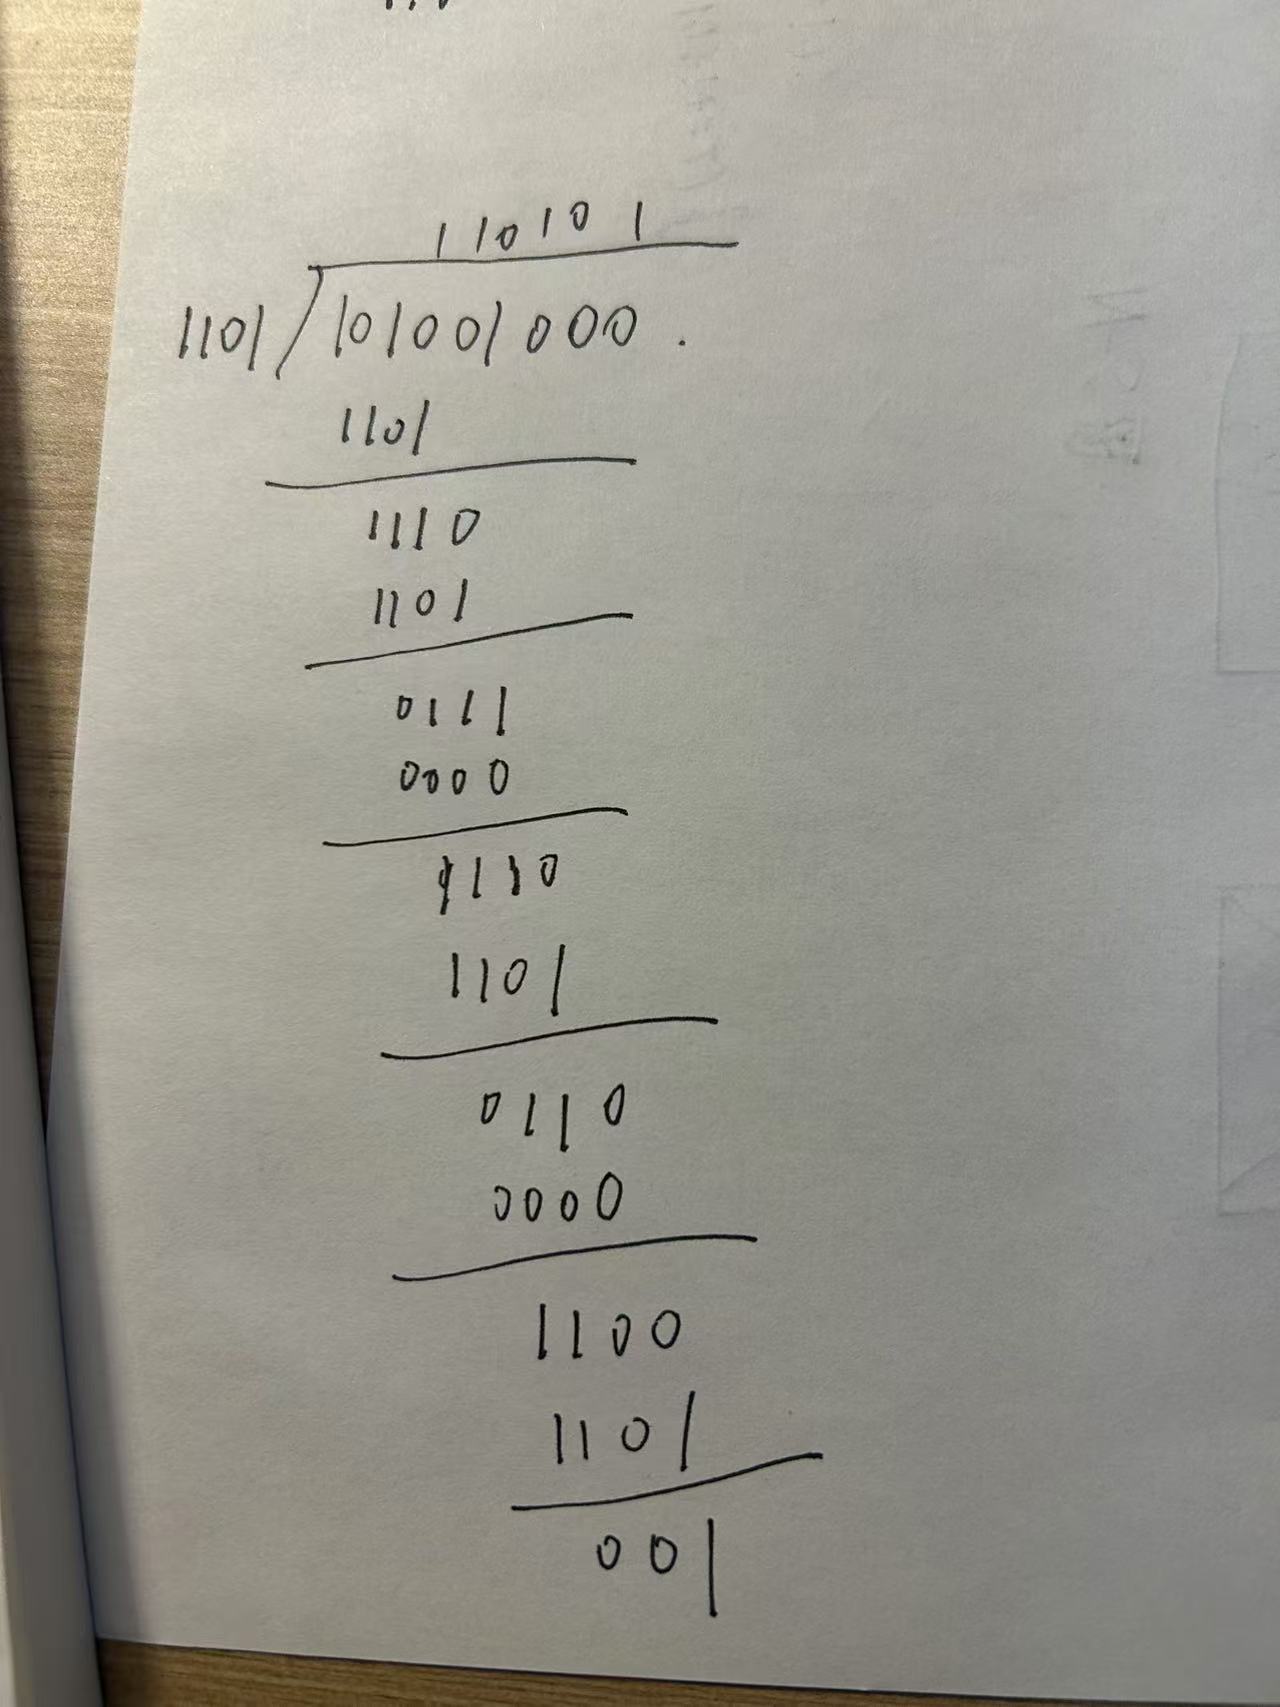 110101
1101 101001000 .
1101
1110
1101
0111
0000
1110
1101
0110
0000
1100
1101
001